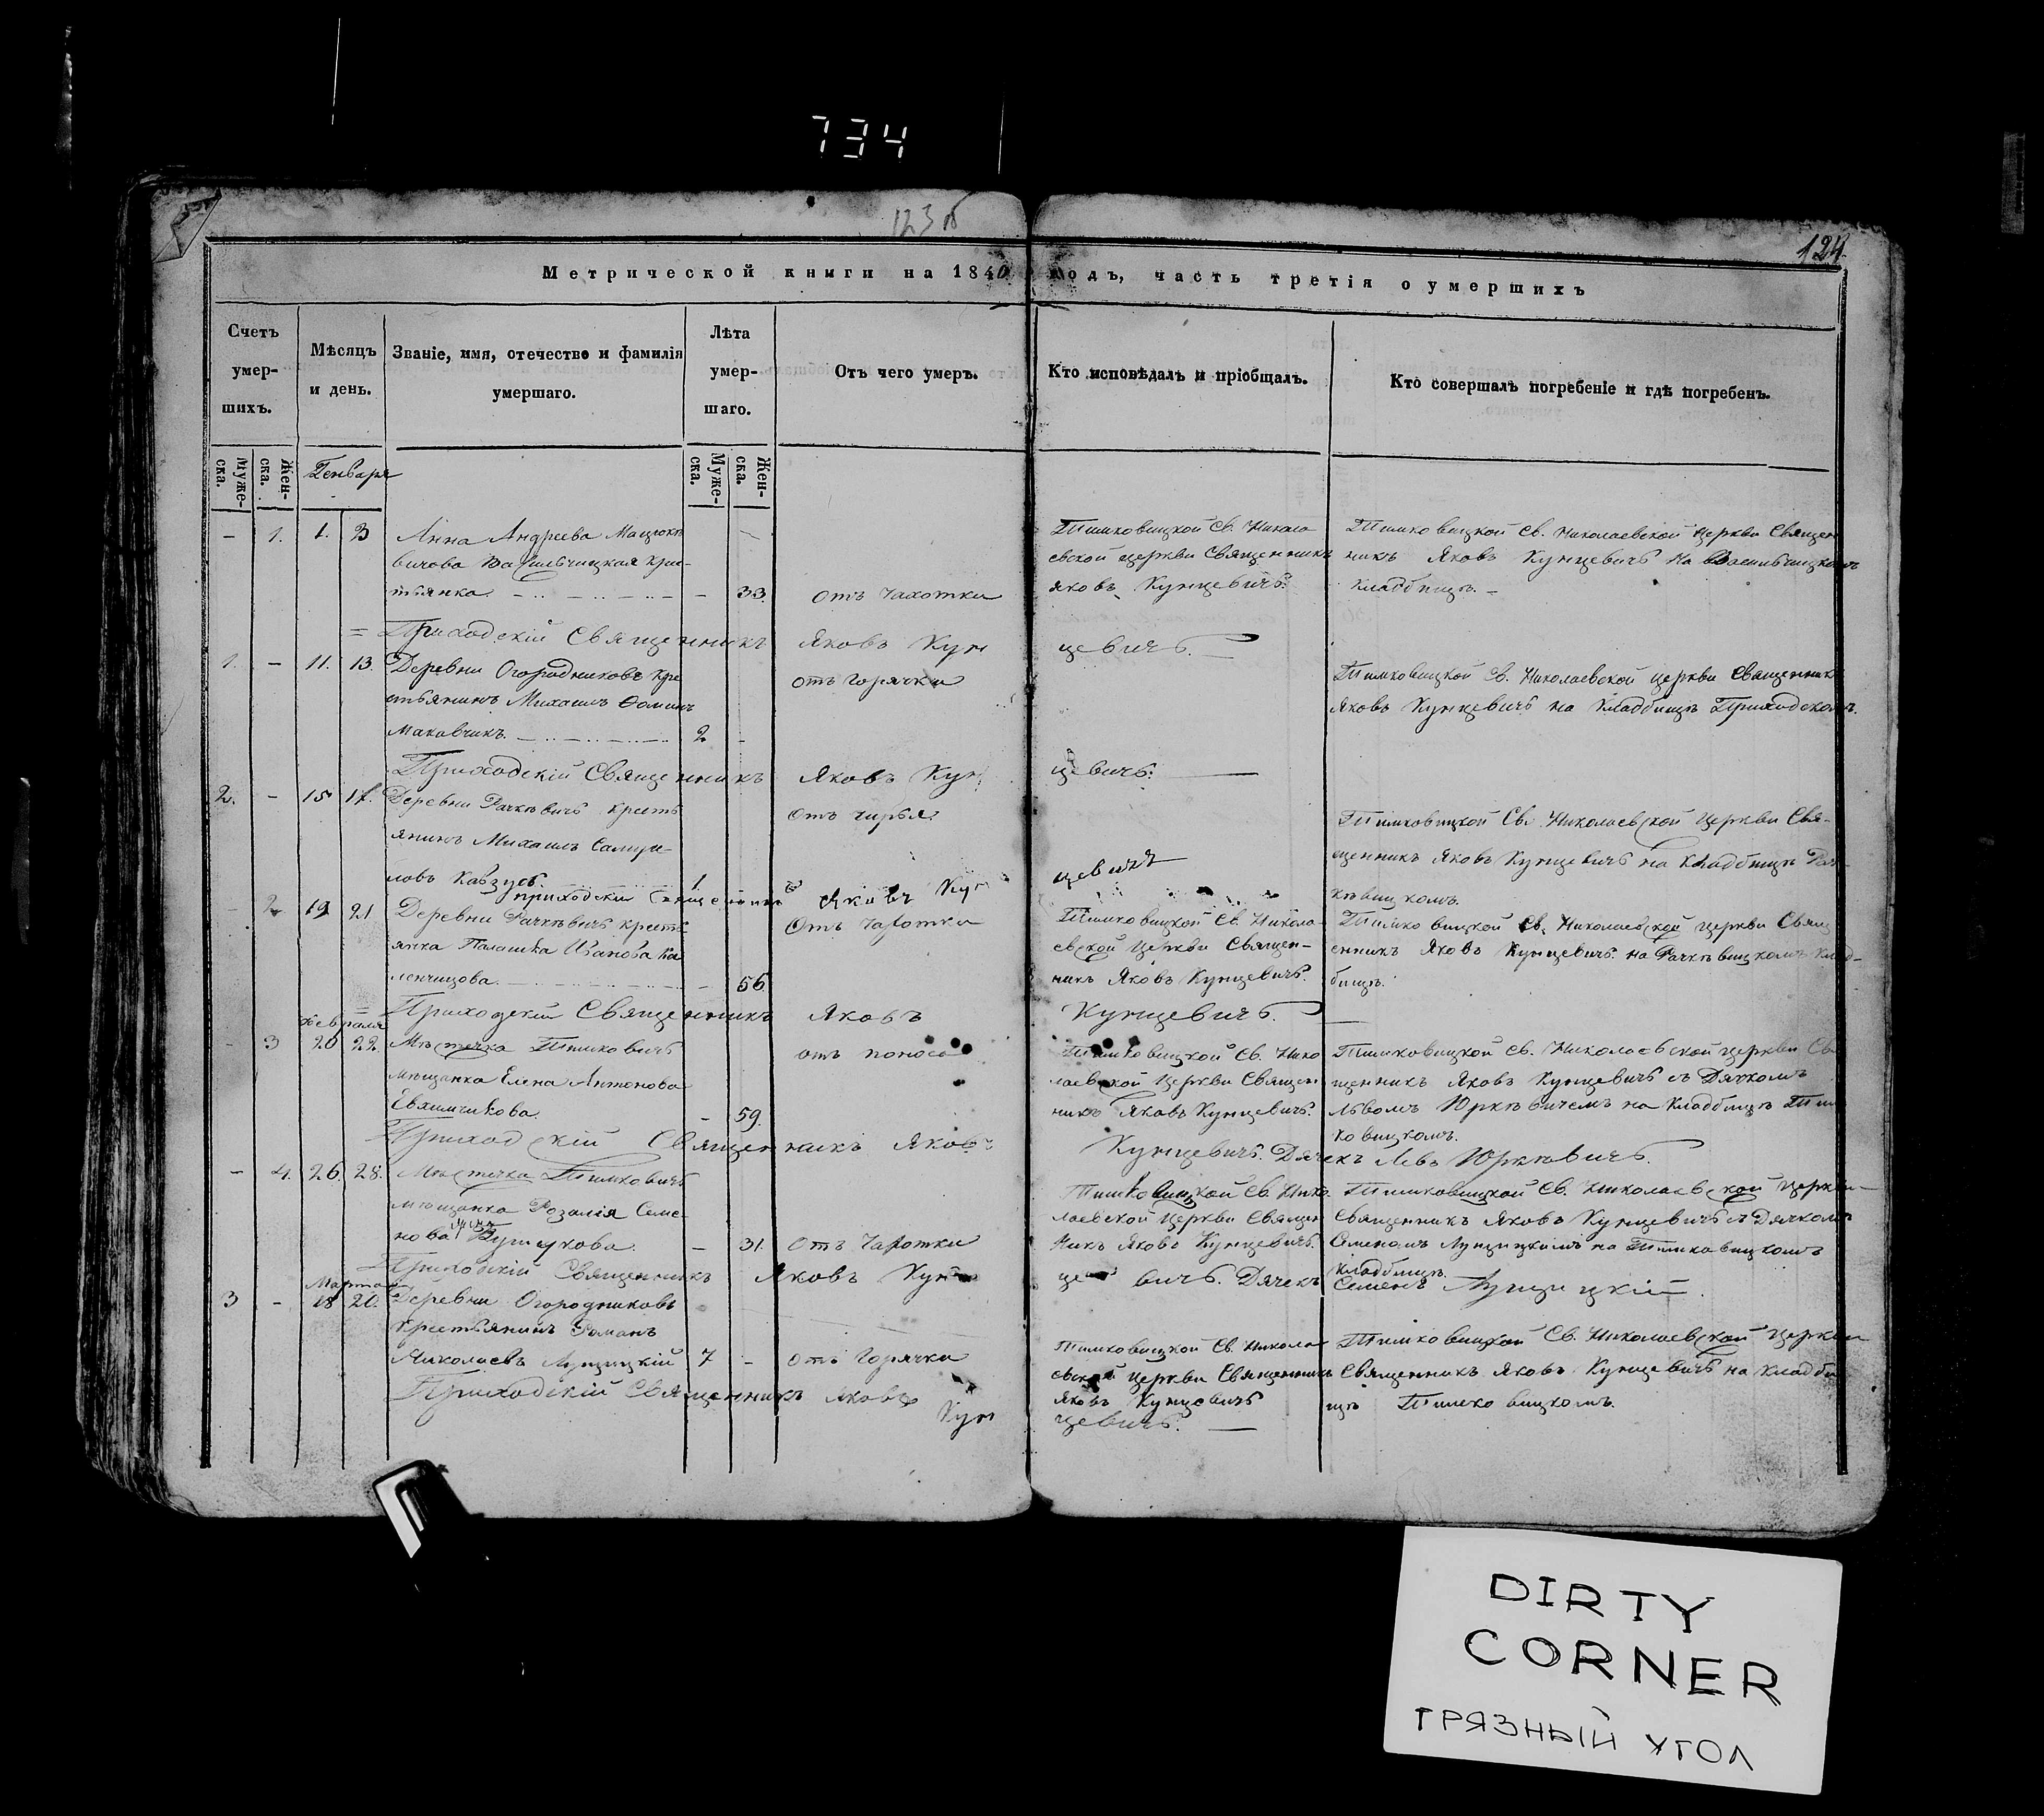 734
123 об
124.
Метрической книги на 1840 годъ, часть третія о умершихъ
Счетъ умер- шихъ.
Мѣсяцъ и день.
Званіе, имя, отечество и фамилія умершаго.
Лѣта умер- шаго.
Отъ чего умеръ.
Кто исповѣдалъ и пріобщалъ.
Кто совершалъ погребеніе и гдѣ погребенъ.
Муже- ска.
Жен- ска.
Генваря
Муже- ска.
Жен- ска.
– 1. 1. 3 Анна Андреева
крес-
тьянка – 33. отъ чахотки
Тимковицкой Св. Никола
евской церкви Священникъ
Яковъ Кунцевичъ.
Тимковицкой Св. Николаевской Церкви Священ
никъ Яковъ Кунцевичъ на
Кладбищѣ. –
= Приходскій Священникъ Яковъ Кун цевичъ.
1. – 11. 13. Деревни Огородниковъ кре
стьянинъ Михаилъ Ѳоминъ
Маковчикъ. 2 –
отъ горячки
Тимковицкой Св. Николаевской церкви Священникъ
Яковъ Кунцевичъ на Кладбищѣ Приходскомъ.
Приходскій Священникъ Яковъ Кун цевичъ.
2. – 15 17. Деревни Рачкѣвичъ кресть
янинъ Михаилъ Самуи-
ловъ 1.
отъ чирья.
Тимковицкой Св. Николаевской Церкви Свя-
щенникъ Яковъ Кунцевичъ на Кладбищѣ Рач
кѣвицкомъ.
приходскій Священникъ Яковъ Кун цевичъ
– 2 19 21. Деревни Рачкѣвичъ кресть
янка Палашка Иванова Ка
ленчицова. – 56.
Отъ Чахотки
Тимковицкой Св. Никола
евской Церкви Священ-
никъ Яковъ Кунцевичъ.
Тимковицкой Св. Николаевской церкви Свящ
енникъ Яковъ Кунцевичъ. на Рачкѣвицкомъ Клад-
бищѣ.
Приходскій Священникъ Яковъ Кунцевичъ.
Февраля
– 3 20 22. Мѣстечка Тимковичъ
мѣщанка Елена Антонова
Евхимчикова. – 59.
отъ поноса
Тимковицкой Св. Нико
лаевской Церкви Священ
никъ Яковъ Кунцевичъ.
Тимковицкой Св. Николаевской церкви Св
щенникъ Яковъ Кунцевичъ съ Дячкомъ
Львомъ Юркѣвичемъ на Кладбищѣ Тим
ковицкомъ.
Приходскій Священникъ Яковъ Кунцевичъ. Дячекъ Левъ Юркѣвичъ.
– 4. 26. 28. Мѣстечка Тимковичъ
мѣщанка Розалія Семе-
нова – 31. Отъ Чахотки
Тимковицкой Св. Нико
лаевской Церкви Священ
никъ Яковъ Кунцевичъ.
Тимковицкой Св. Николаевской Церкви
Священникъ Яковъ Кунцевичъ съ Дячкомъ
Семеномъ Лущицкимъ на Тимковицкомъ
Кладбищѣ.
Приходскій Священникъ Яковъ Кун цевичъ. Дячекъ Семенъ Лущицкій.
Марта
3 – 18 20. Деревни Огородниковъ
крестьянинъ Романъ
Николаевъ Лущицкій 7 – отъ Горячки
Тимковицкой Св. Никола
евской церкви Священникъ
Яковъ Кунцевичъ
Тимковицкой Св. Николаевской Церкви
Священникъ Яковъ Кунцевичъ на Кладби
щѣ Тимковицкомъ.
Приходскій Священникъ Яковъ
Кун цевичъ.
DIRTY
CORNER
ГРЯЗНЫЙ УГОЛ